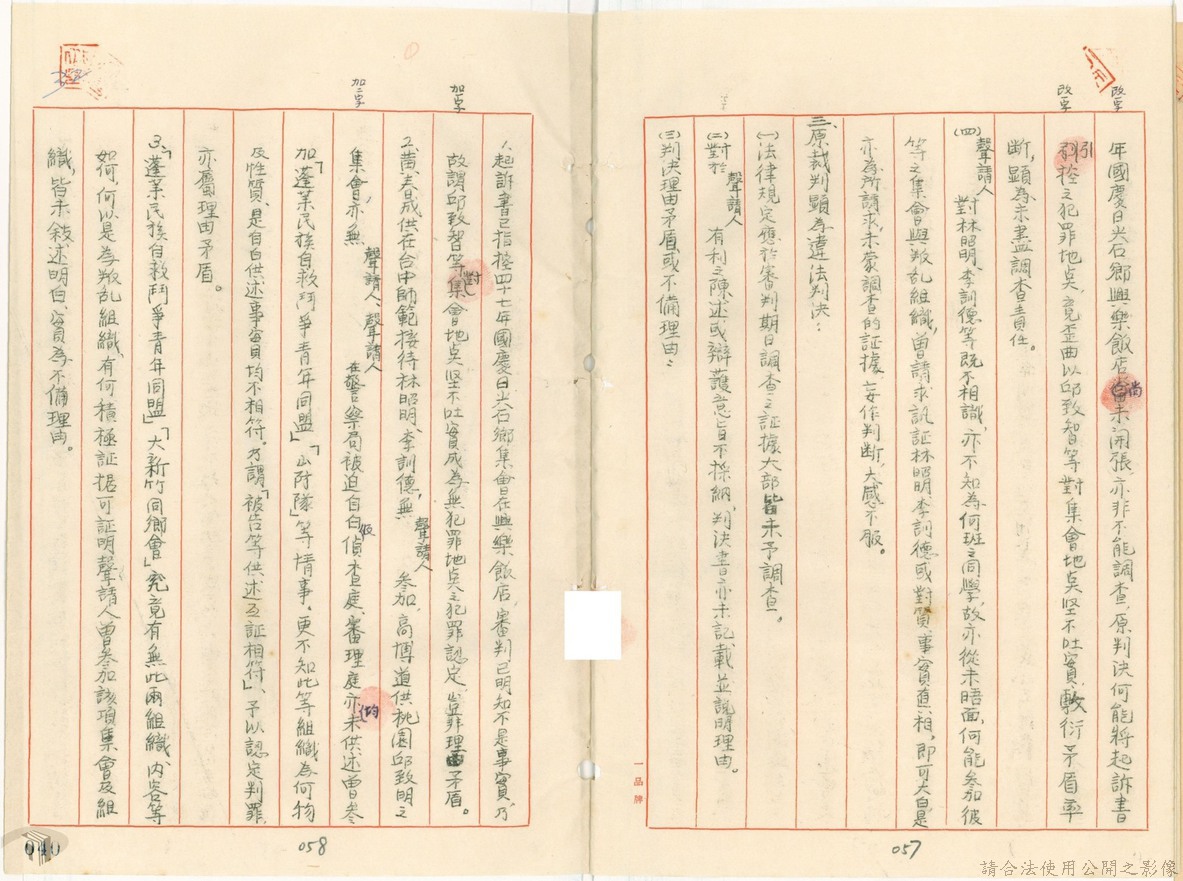 改一字
改一字
年國慶日大石鄉興樂飯店尚未開張亦非不能調查，原判決何能將起訴書
引控之犯罪地點，竟歪曲以邱致智等對集會地點坚不吐實，敷衍矛盾率
断，顯為未盡調查責任。
(四)聲請人對林照明、李訓德等既不相識，亦不知為何班之同學，故亦從未晤面，何能參加彼
等之集會與叛乱組織，曾請求訊証林照明、李訓德或對質，事實真相，即可大白，是
亦為所請求，未蒙調查的証據，妄作判断，大感不服。
三、原裁判顯為違法判決：
(一)法律規定應於審判期日調查之証據大部皆未予調查。
(二)對於聲請人有利之陳述或辯護意旨不採納，判決書亦未記載並說明理由。
(三)判決理由矛盾或不備理由：
一品牌
057
加一字
加二字
1.起訴書已指控四十七年國慶日大石鄉集會在興樂飯店，審判已明知不是事實，乃
故謂邱致智等對集會地點坚不吐實，成為無犯罪地點之犯罪認定，豈非理由矛盾。
2.黃春成供在台中師範接待林照明、李訓德，無聲請人參加，高博道供桃園邱致明之
集會，亦無聲請人、聲請人在警察局被迫自白後，偵查庭、審理庭亦均未供述曾參
加「蓬萊民族自救鬥爭青年同盟」「山防隊」等情事，更不知此等組織為何物
及性質，是自白供述事實均不相符，乃謂「被告等供述互証相符」，予以認定判罪，
亦屬理由矛盾。
3.「蓬萊民族自救鬥爭青年同盟」「大新竹同鄉會」究竟有無此兩組織，內容等
如何，何以是為叛乱組織，有何積極証据可証明聲請人曾參加該項集會及組
織，皆未敘述明白，實為不備理由。
058
040
請合法使用公開之影像